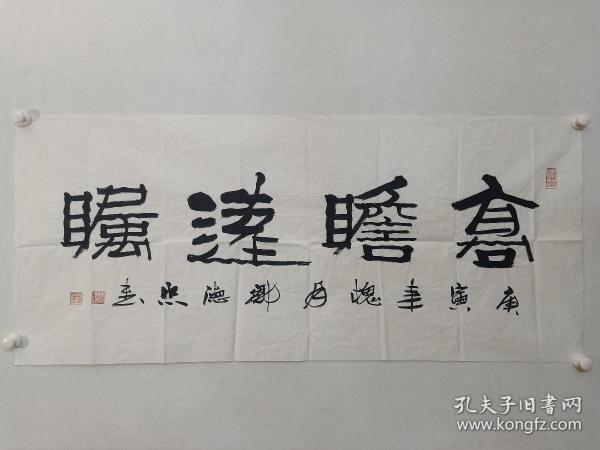 高瞻遠瞩
庚寅年槐月鄭德忠書
孔夫子旧書网
www.kongfz.com